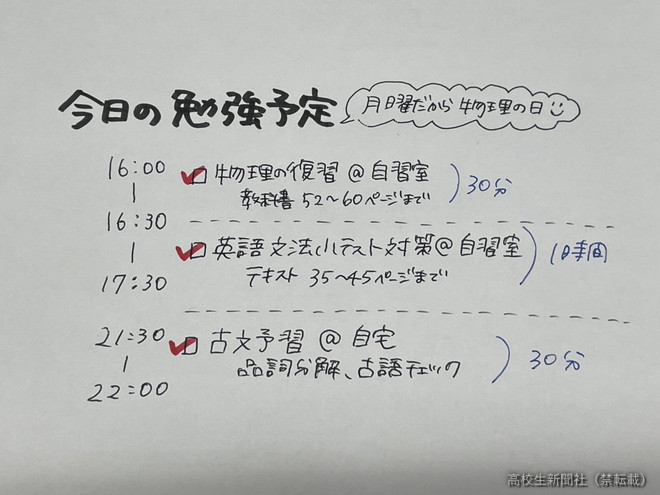 今日の勉強予定
月曜だから物理の日
16:00
物理の復習 @ 自習室
教科書 52〜60ページまで
30分
16:30
英語文法小テスト対策@自習室
テキスト 35〜45ページまで
1時間
17:30
21:30
古文予習 @ 自宅
品詞分解、古語チェック
30分
22:00
高校生新聞社（禁転載）